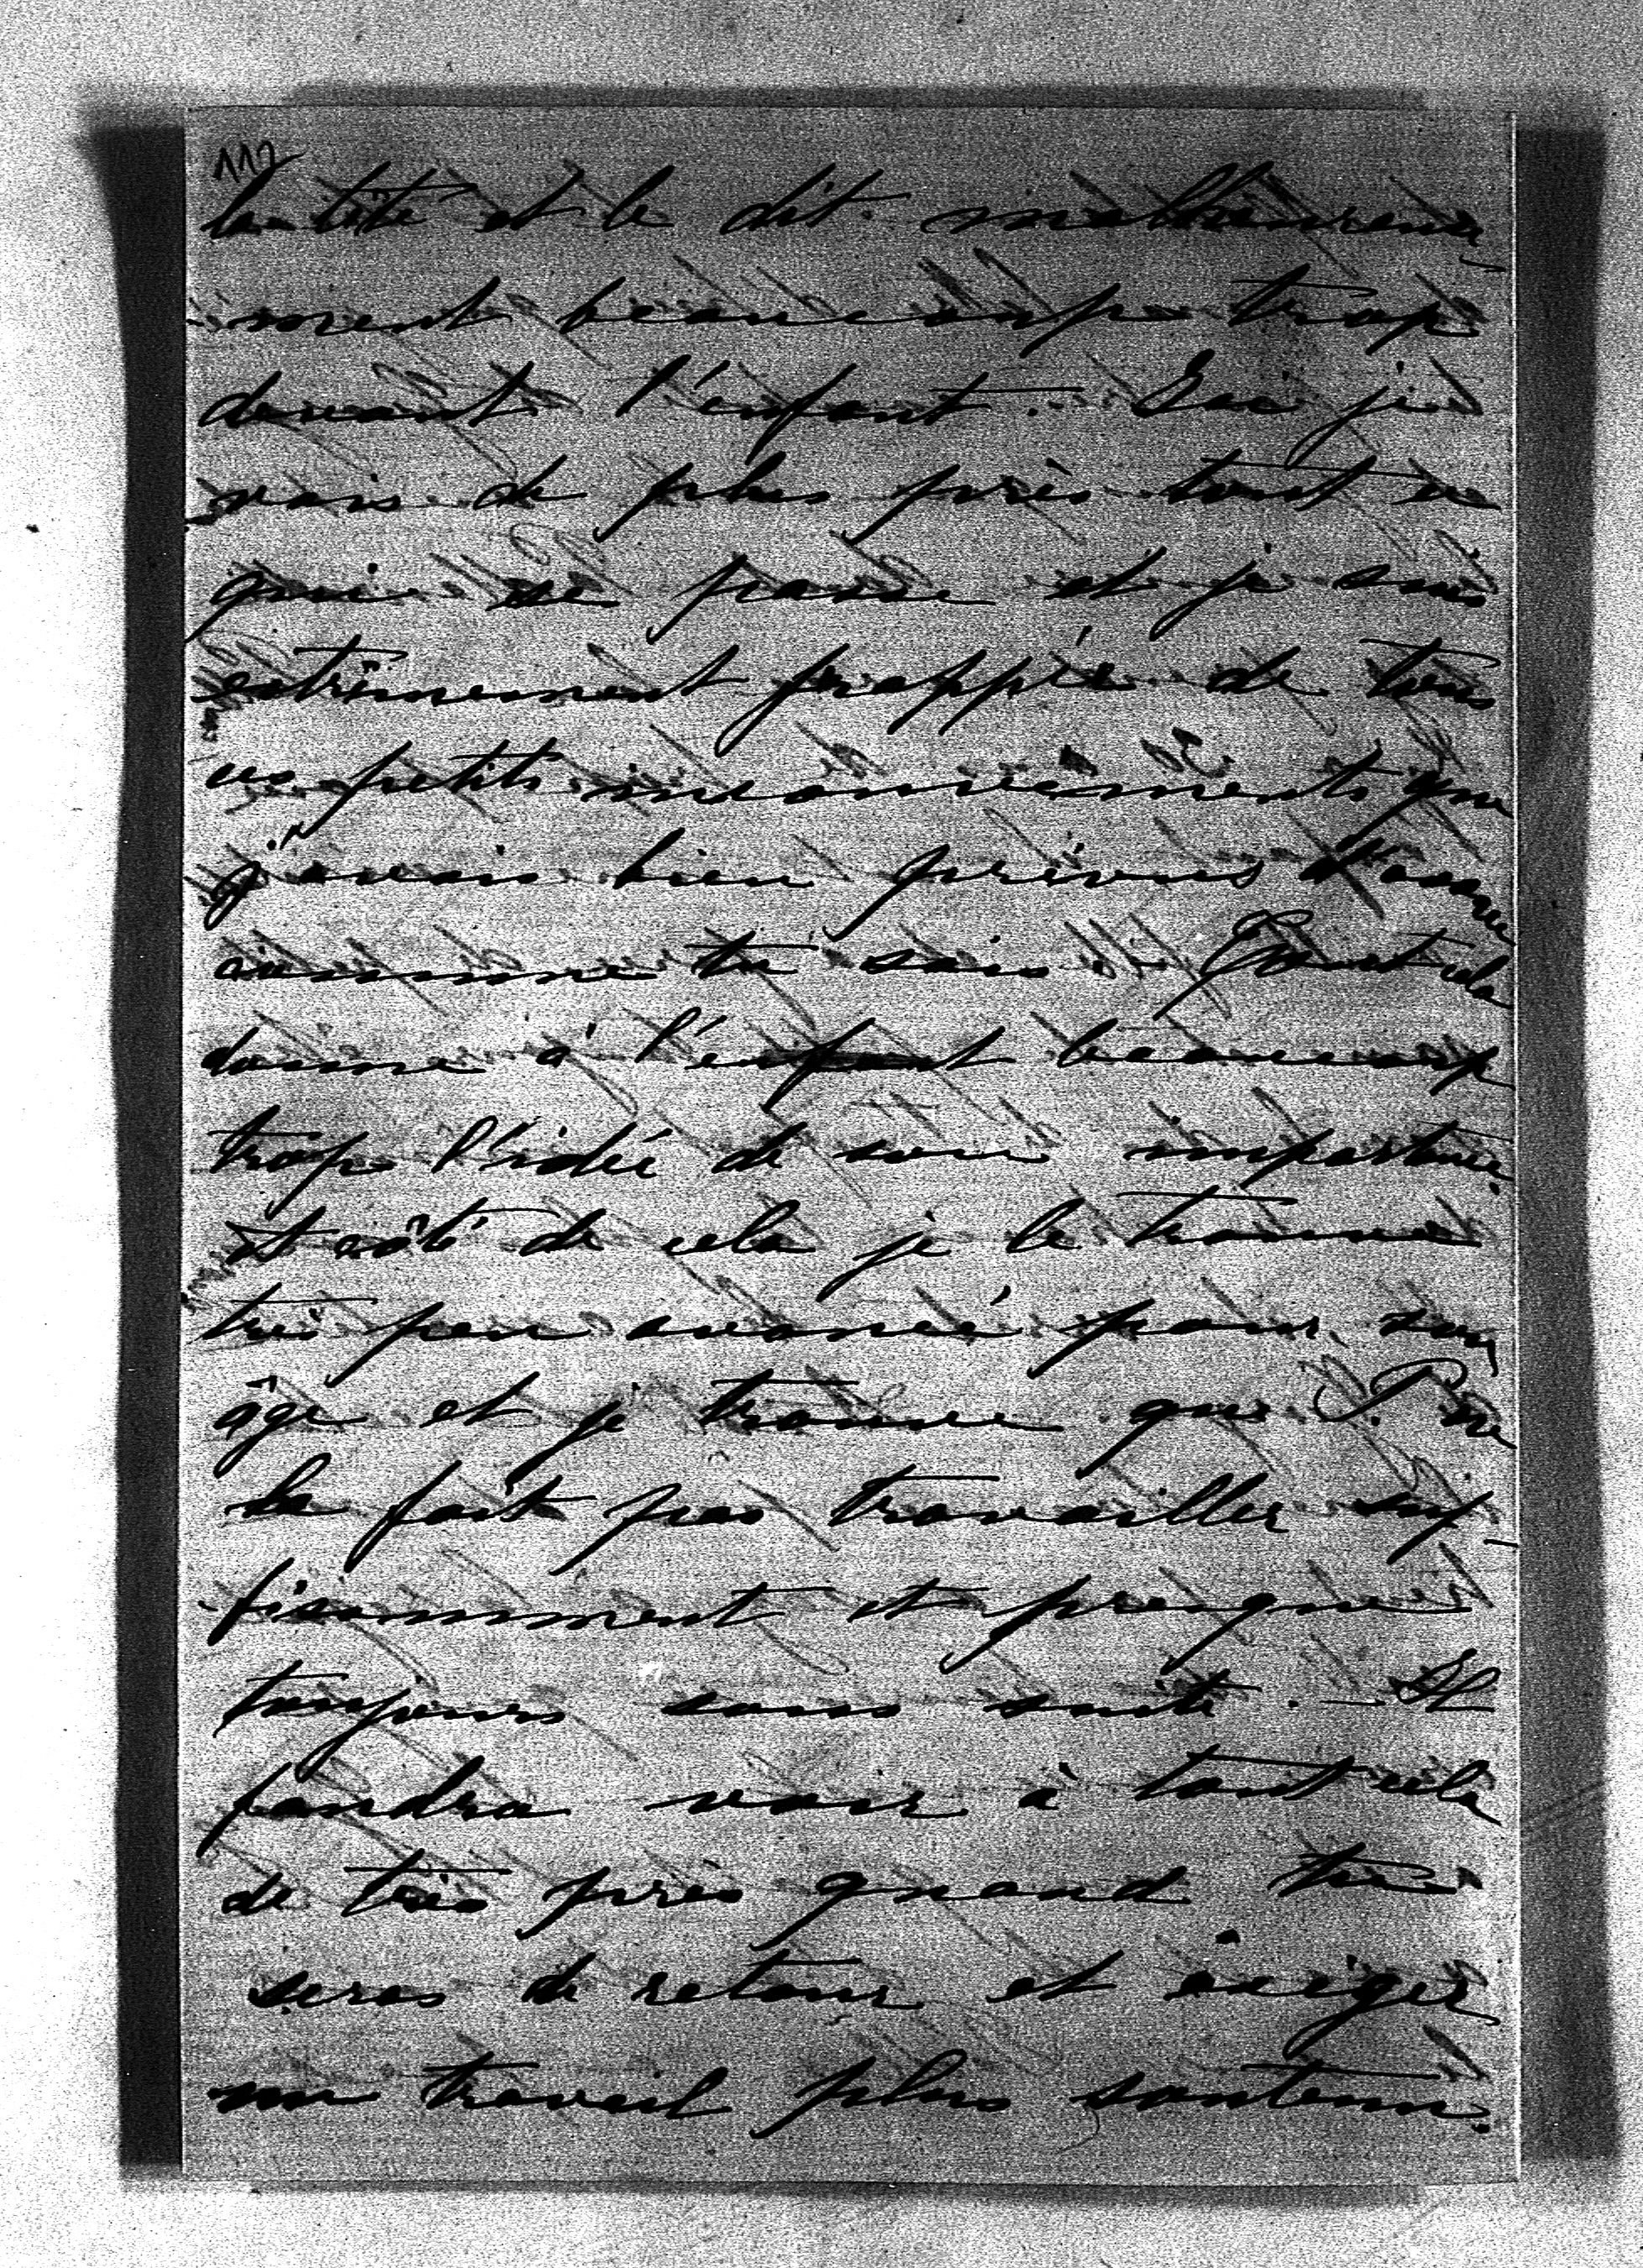 112
la tête et le dit malheureuse-
ment beaucoup trop
devant l'enfant. Ici je
vois de plus près tout ce
qui se passe et je suis
extrêmement frappée de tous
ces petits inconvénients que
j'avais bien prévus d'avance
comme tu sais. Tout cela
donne à l'enfant beaucoup
trop l'idée de son importance.
Et côté de cela je le trouve
très peu avancé pour son
âge et je trouve que P. ne
le fait pas travailler suf-
fisamment et presque
toujours sans suite. — Il
faudra voir à tout cela
de très près quand tu
seras de retour et exiger
un travail plus soutenu.